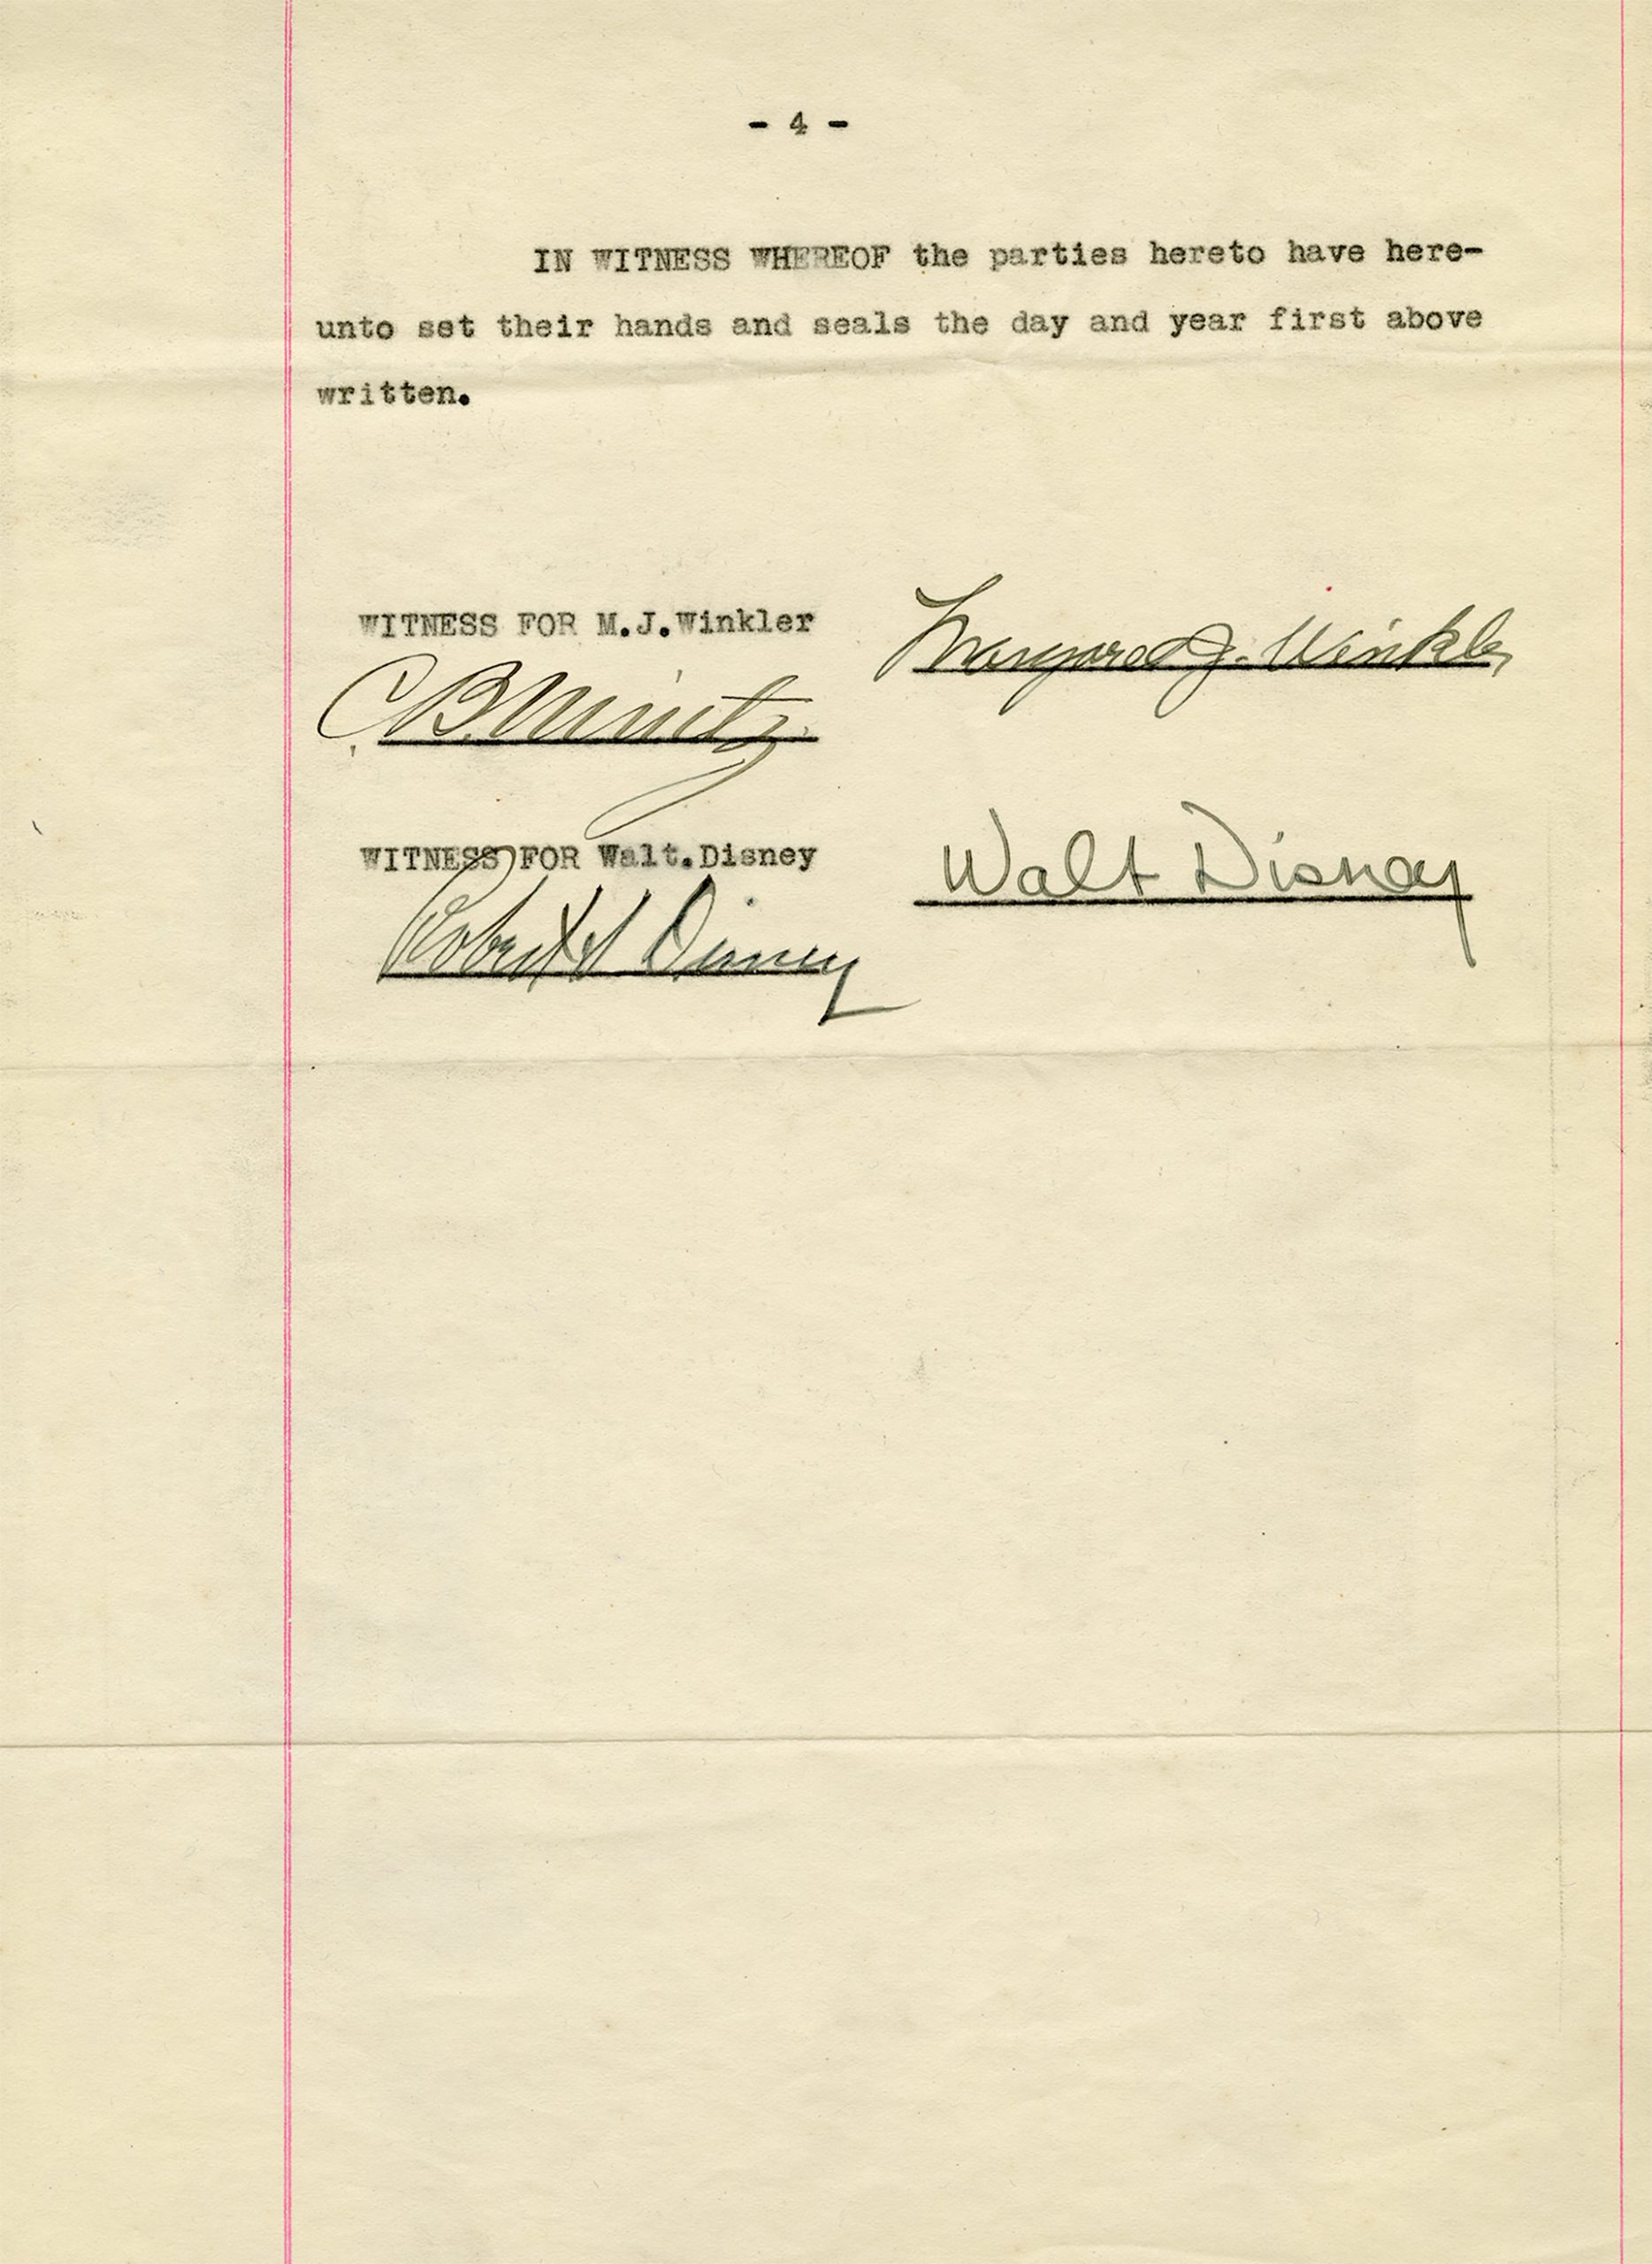 - 4 -
IN WITNESS WHEREOF the parties hereto have here-
unto set their hands and seals the day and year first above
written.
WITNESS FOR M.J.Winkler
Margaret J. Winkler
CB Mintz
WITNESS FOR Walt.Disney
Walt Disney
Robert Disney